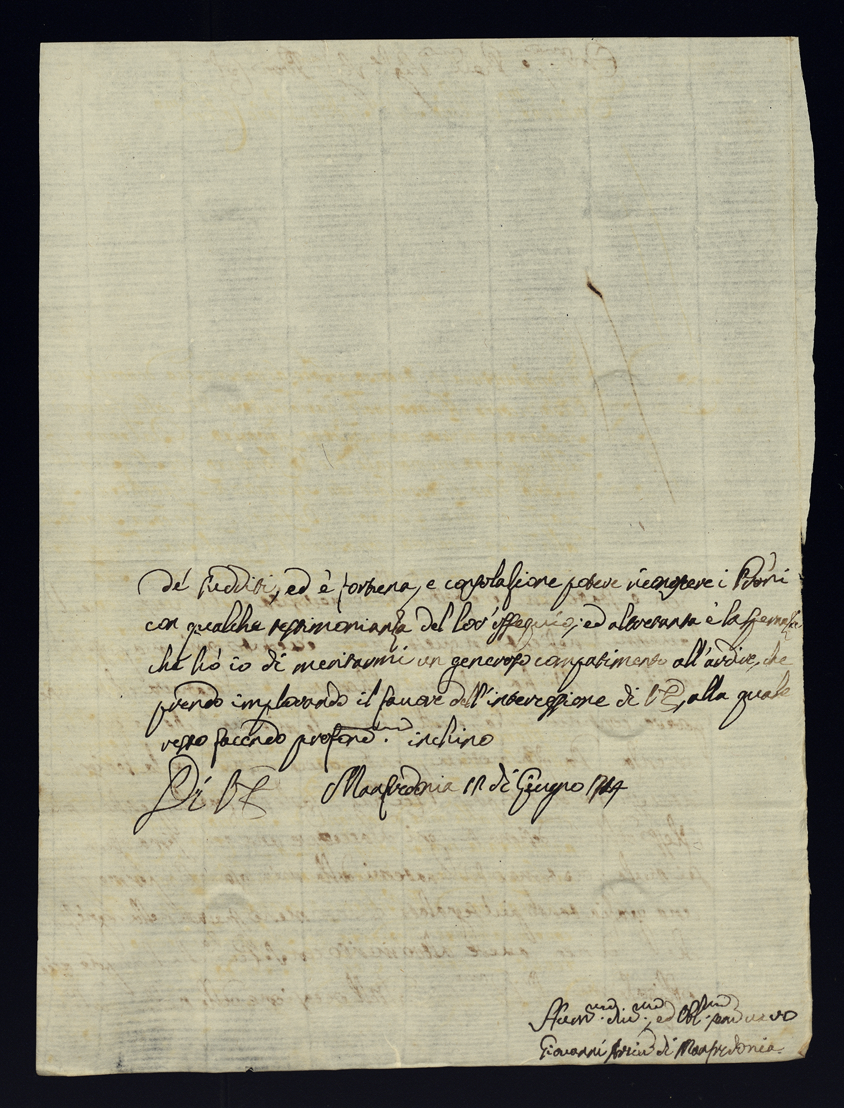 de' sudditi, ed è fortuna, e consolazione potere riconoscere i Prōni
con qualche testimonianza del lor' ossequio; ed altretanta è la speranza
che hò io di meritarmi un generoso compatimento all'ardire, che
prendo implorando il favore dell'intercessione di VE, alla quale
resto facendo profond.mo inchino
Di VE Manfredonia di Giugno
Hum.mo div.mo, ed Obl.mo
Giovanni di Manfredonia